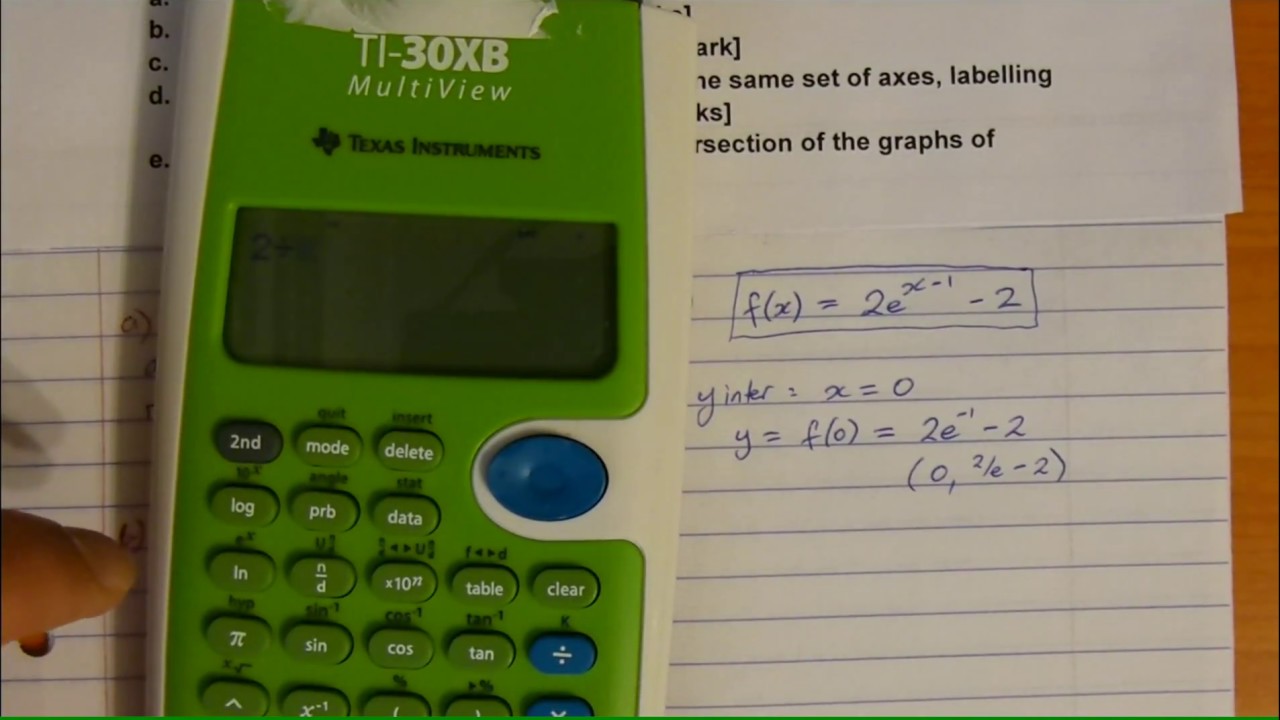 a.
b.
c.
d.
e.
ark]
he same set of axes, labelling
ks]
rsection of the graphs of
TI-30XB
MultiView
TEXAS INSTRUMENTS
2÷
f(x) = 2e^(x-1) - 2
y inter : x = 0
y = f(0) = 2e^-1 - 2
(0, 2/e - 2)
a)
quit insert
2nd mode delete
10^x angle stat
log prb data
e^x f◄►d
ln n/d ×10^n table clear
hyp sin^-1 cos^-1 tan^-1 K
π sin cos tan ÷
x√ % ►%
^ x^-1 ( ) ×